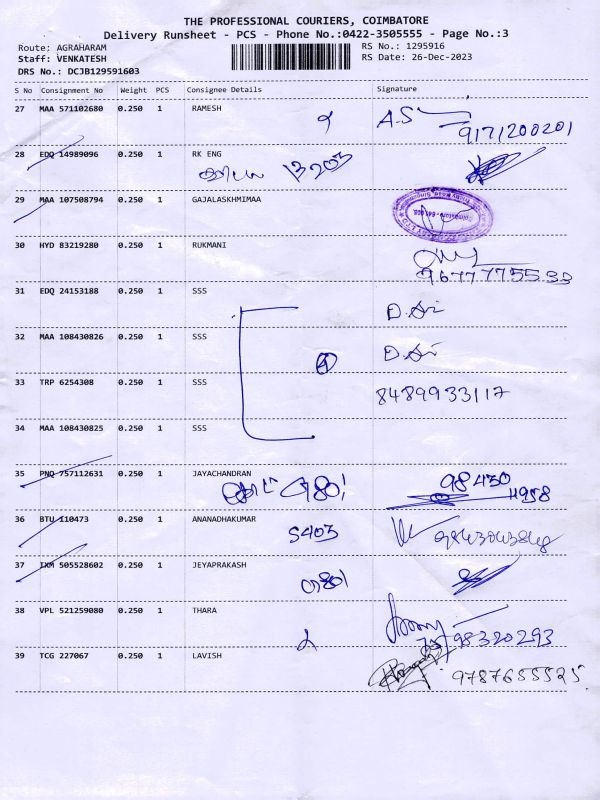 THE PROFESSIONAL COURIERS, COIMBATORE
Delivery Runsheet - PCS - Phone No.:0422-3505555 - Page No.:3
Route: AGRAHARAM
RS No.: 1295916
Staff: VENKATESH
RS Date: 26-Dec-2023
DRS No.: DCJB129591603
S No Consignment No Weight PCS Consignee Details Signature
27 MAA 571102680 0.250 1 RAMESH A.S
9171200201
28 EDQ 14989096 0.250 1 RK ENG
B203
29 MAA 107508794 0.250 1 GAJALASKHMIMAA
30 HYD 83219280 0.250 1 RUKMANI
9677775533
31 EDQ 24153188 0.250 1 SSS
32 MAA 108430826 0.250 1 SSS
4
33 TRP 6254308 0.250 1 SSS 8489933117
34 MAA 108430825 0.250 1 SSS
35 PNQ 757112631 0.250 1 JAYACHANDRAN 98430
44958
36 BTU 110473 0.250 1 ANANADHAKUMAR
S403
37 IXM 505528602 0.250 1 JEYAPRAKASH
38 VPL 521259080 0.250 1 THARA
98320293
39 TCG 227067 0.250 1 LAVISH
9787655525